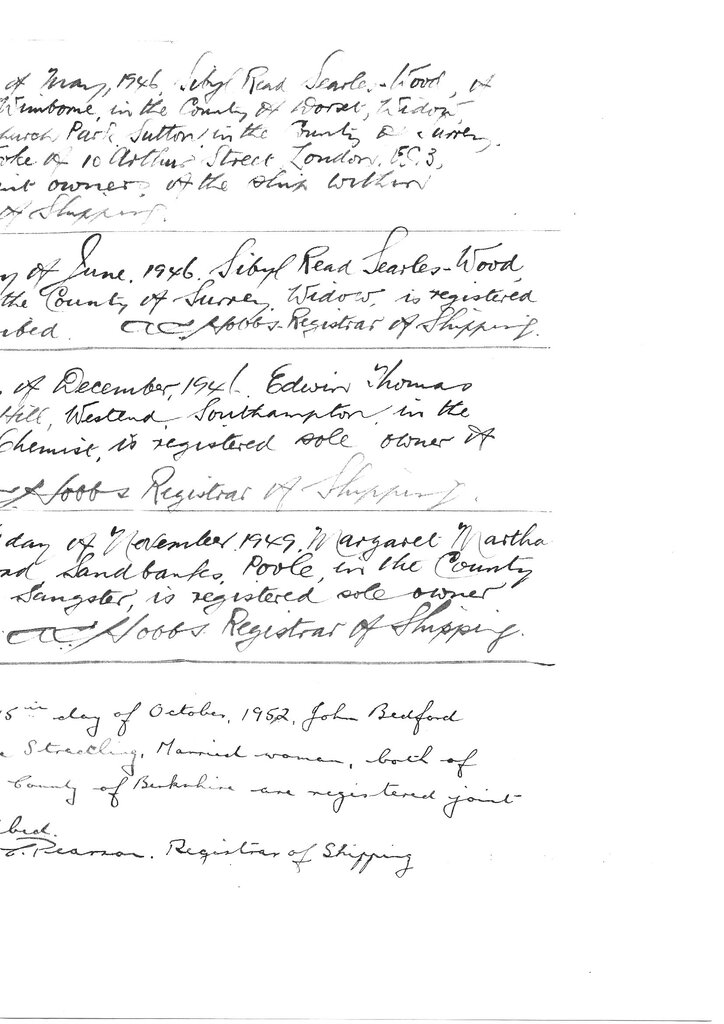 of May, 1946, Sibyl Read Searles-Wood, of
Wimborne, in the County of Dorset, Widow,
Church Park Sutton, in the County of Surrey,
of 10 Arthur Street, London, E.C.3,
owners of the ship within
of Shipping.
of June, 1946, Sibyl Read Searles-Wood,
the County of Surrey, Widow, is registered
Hobbs Registrar of Shipping.
of December, 194 Edwin Thomas
Hill, Westend Southampton, in the
Chemist, is registered sole owner of
Hobbs Registrar of Shipping.
day of November, 1949, Margaret Martha
Sandbanks, Poole, in the County
Sangster, is registered sole owner
Hobbs Registrar of Shipping.
day of October, 1952, John Bedford
Married woman, both of
County of Berkshire are registered joint
bed.
Pearson. Registrar of Shipping